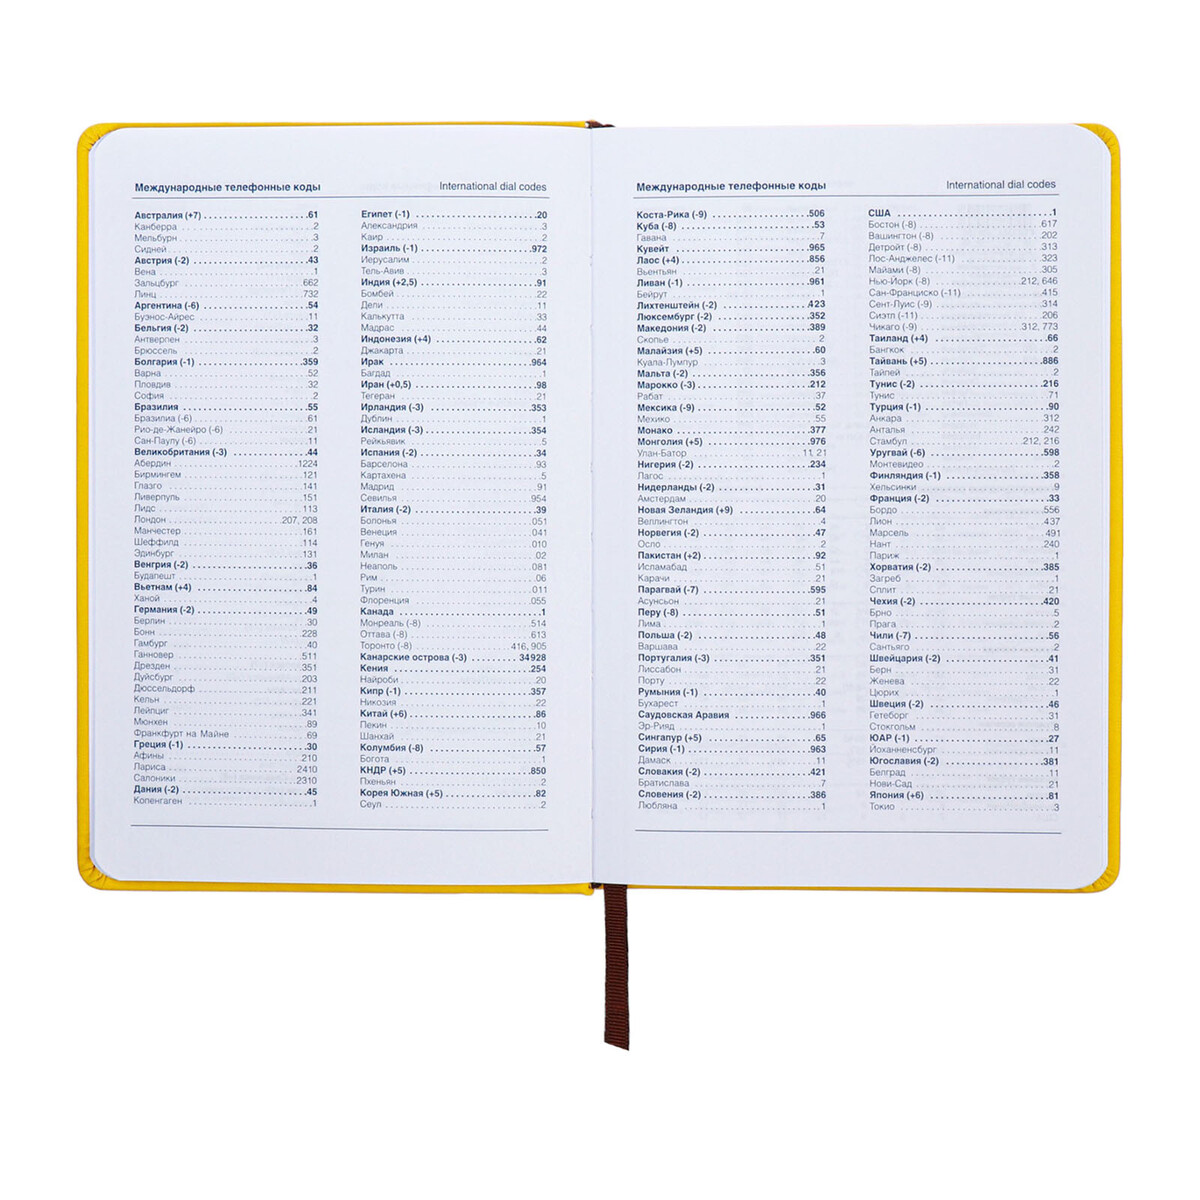 Международные телефонные коды International dial codes
Австралия (+7) 61
Канберра 2
Мельбурн 3
Сидней 2
Австрия (-2) 43
Вена 1
Зальцбург 662
Линц 732
Аргентина (-6) 54
Буэнос-Айрес 11
Бельгия (-2) 32
Антверпен 3
Брюссель 2
Болгария (-1) 359
Варна 52
Пловдив 32
София 2
Бразилия 55
Бразилиа (-6) 61
Рио-де-Жанейро (-6) 21
Сан-Паулу (-6) 11
Великобритания (-3) 44
Абердин 1224
Бирмингем 121
Глазго 141
Ливерпуль 151
Лидс 113
Лондон 207, 208
Манчестер 161
Шеффилд 114
Эдинбург 131
Венгрия (-2) 36
Будапешт 1
Вьетнам (+4) 84
Ханой 4
Германия (-2) 49
Берлин 30
Бонн 228
Гамбург 40
Ганновер 511
Дрезден 351
Дуйсбург 203
Дюссельдорф 211
Кельн 221
Лейпциг 341
Мюнхен 89
Франкфурт на Майне 69
Греция (-1) 30
Афины 210
Лариса 2410
Салоники 2310
Дания (-2) 45
Копенгаген 1
Египет (-1) 20
Александрия 3
Каир 2
Израиль (-1) 972
Иерусалим 2
Тель-Авив 3
Индия (+2,5) 91
Бомбей 22
Дели 11
Калькутта 33
Мадрас 44
Индонезия (+4) 62
Джакарта 21
Ирак 964
Багдад 1
Иран (+0,5) 98
Тегеран 21
Ирландия (-3) 353
Дублин 1
Исландия (-3) 354
Рейкьявик 5
Испания (-2) 34
Барселона 93
Картахена 5
Мадрид 91
Севилья 954
Италия (-2) 39
Болонья 051
Венеция 041
Генуя 010
Милан 02
Неаполь 081
Рим 06
Турин 011
Флоренция 055
Канада 1
Монреаль (-8) 514
Оттава (-8) 613
Торонто (-8) 416, 905
Канарские острова (-3) 34928
Кения 254
Найроби 20
Кипр (-1) 357
Никозия 22
Китай (+6) 86
Пекин 10
Шанхай 21
Колумбия (-8) 57
Богота 1
КНДР (+5) 850
Пхеньян 2
Корея Южная (+5) 82
Сеул 2
Международные телефонные коды International dial codes
Коста-Рика (-9) 506
Куба (-8) 53
Гавана 7
Кувейт 965
Лаос (+4) 856
Вьентьян 21
Ливан (-1) 961
Бейрут 1
Лихтенштейн (-2) 423
Люксембург (-2) 352
Македония (-2) 389
Скопье 2
Малайзия (+5) 60
Куала-Лумпур 3
Мальта (-2) 356
Марокко (-3) 212
Рабат 37
Мексика (-9) 52
Мехико 55
Монако 377
Монголия (+5) 976
Улан-Батор 11, 21
Нигерия (-2) 234
Лагос 1
Нидерланды (-2) 31
Амстердам 20
Новая Зеландия (+9) 64
Веллингтон 4
Норвегия (-2) 47
Осло 2
Пакистан (+2) 92
Исламабад 51
Карачи 21
Парагвай (-7) 595
Асунсьон 21
Перу (-8) 51
Лима 1
Польша (-2) 48
Варшава 22
Португалия (-3) 351
Лиссабон 21
Порту 22
Румыния (-1) 40
Бухарест 1
Саудовская Аравия 966
Эр-Рияд 1
Сингапур (+5) 65
Сирия (-1) 963
Дамаск 11
Словакия (-2) 421
Братислава 7
Словения (-2) 386
Любляна 1
США 1
Бостон (-8) 617
Вашингтон (-8) 202
Детройт (-8) 313
Лос-Анджелес (-11) 323
Майами (-8) 305
Нью-Йорк (-8) 212, 646
Сан-Франциско (-11) 415
Сент-Луис (-9) 314
Сиэтл (-11) 206
Чикаго (-9) 312, 773
Таиланд (+4) 66
Бангкок 2
Тайвань (+5) 886
Тайпей 2
Тунис (-2) 216
Тунис 71
Турция (-1) 90
Анкара 312
Анталья 242
Стамбул 212, 216
Уругвай (-6) 598
Монтевидео 2
Финляндия (-1) 358
Хельсинки 9
Франция (-2) 33
Бордо 556
Лион 437
Марсель 491
Нант 240
Париж 1
Хорватия (-2) 385
Загреб 1
Сплит 21
Чехия (-2) 420
Брно 5
Прага 2
Чили (-7) 56
Сантьяго 2
Швейцария (-2) 41
Берн 31
Женева 22
Цюрих 1
Швеция (-2) 46
Гетеборг 31
Стокгольм 8
ЮАР (-1) 27
Йоханненсбург 11
Югославия (-2) 381
Белград 11
Нови-Сад 21
Япония (+6) 81
Токио 3